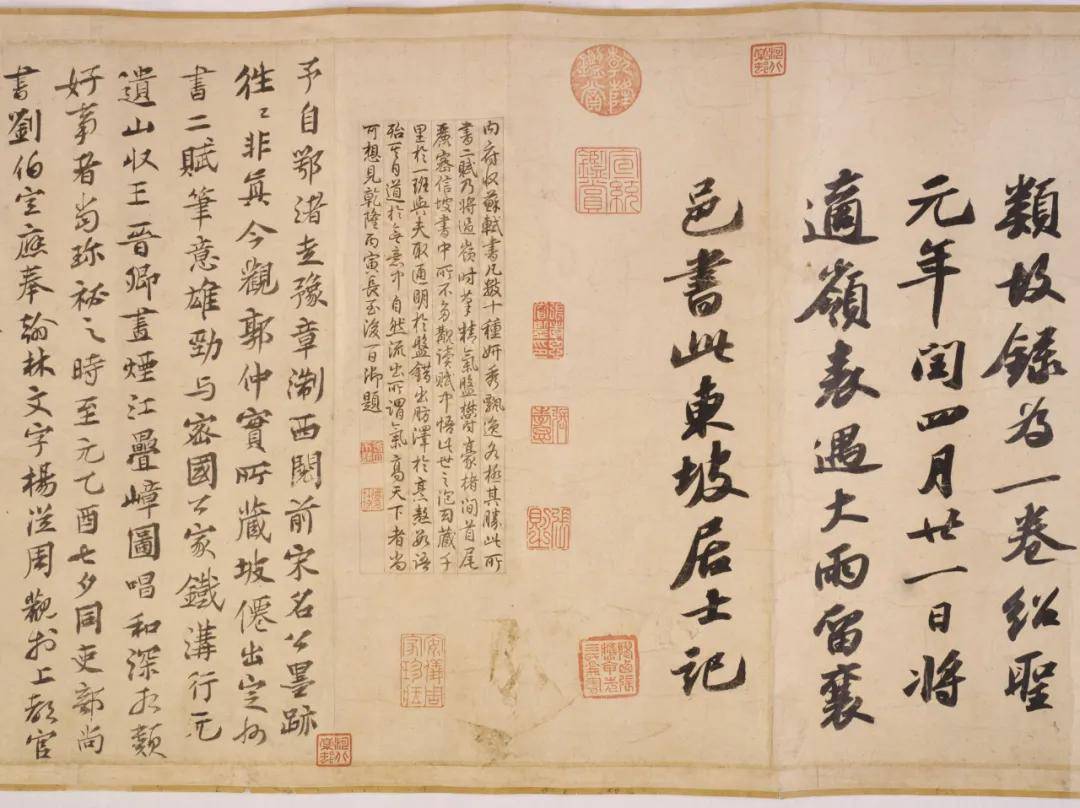 類故録為一卷紹聖
元年閏四月廿一日將
適嶺表遇大雨留襄
邑書此東坡居士記
乾隆鑑賞
宣統鑑賞
張則之
安儀周家珍藏
內府收蘇軾書凡數十種妍秀飄逸各極其勝此所
書二賦乃將過嶺時筆精氣盤欝豪楮間首尾
麗富信坡書中所不多覯讀賦中悟此世之泡幻藏千
里於一班與夫取通明於盤錯出肪澤於烹熬數語
殆其自道於無意中自然流出所謂氣高天下者尚
可想見乾隆丙寅長至後一日御題
予自鄂渚走豫章淛西閱前宋名公墨跡
往〻非真今觀郭仲實所藏坡僊出定州
書二賦筆意雄勁与密國公家鐵溝行元
遺山收王晉卿畫煙江疊嶂圖唱和深相類
好事者當珍祕之時至元乙酉七夕同吏部尚
書劉伯宣應奉翰林文字楊從周觀於上都官